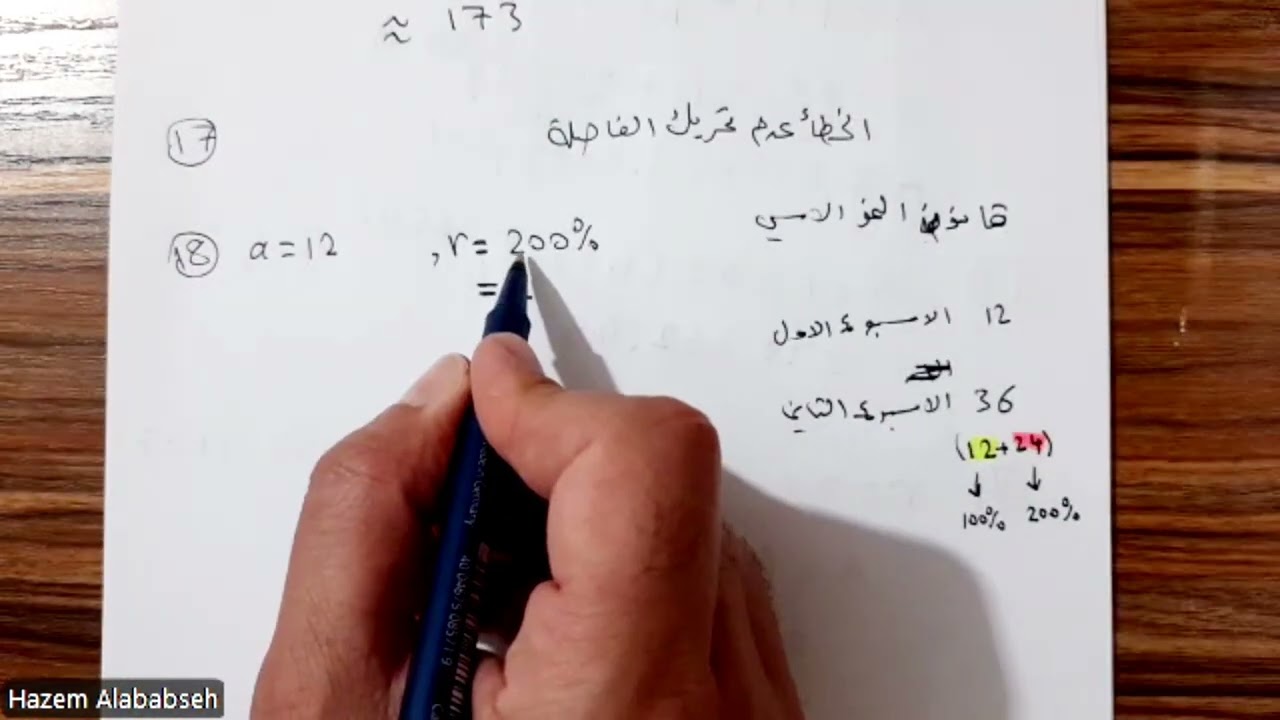 ≈ 173
17 الخطأ عدم تحريك الفاصلة
قانون النمو الاسي
18 a = 12 , r = 200%
=
12 الاسبوع الاول
36 الاسبوع الثاني
(12+24)
↓ ↓
100% 200%
Hazem Alababseh